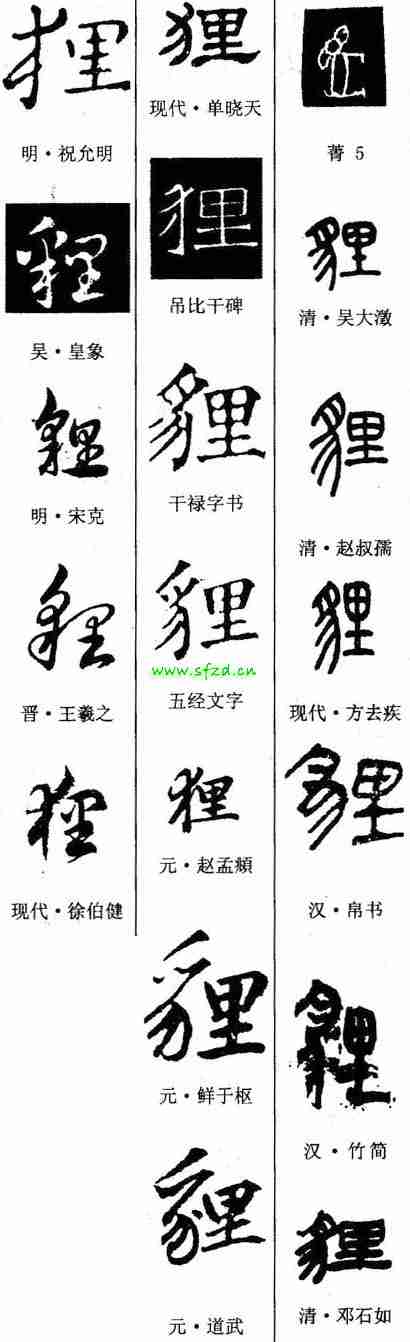 狸
明·祝允明
貍
吴·皇象
貍
明·宋克
貍
晋·王羲之
狸
现代·徐伯健
狸
现代·单晓天
狸
吊比干碑
貍
干禄字书
貍
www.sfzd.cn
五经文字
狸
元·赵孟頫
貍
元·鲜于枢
貍
元·道武
菁 5
貍
清·吴大澂
貍
清·赵叔孺
貍
现代·方去疾
貍
汉·帛书
貍
汉·竹简
貍
清·邓石如